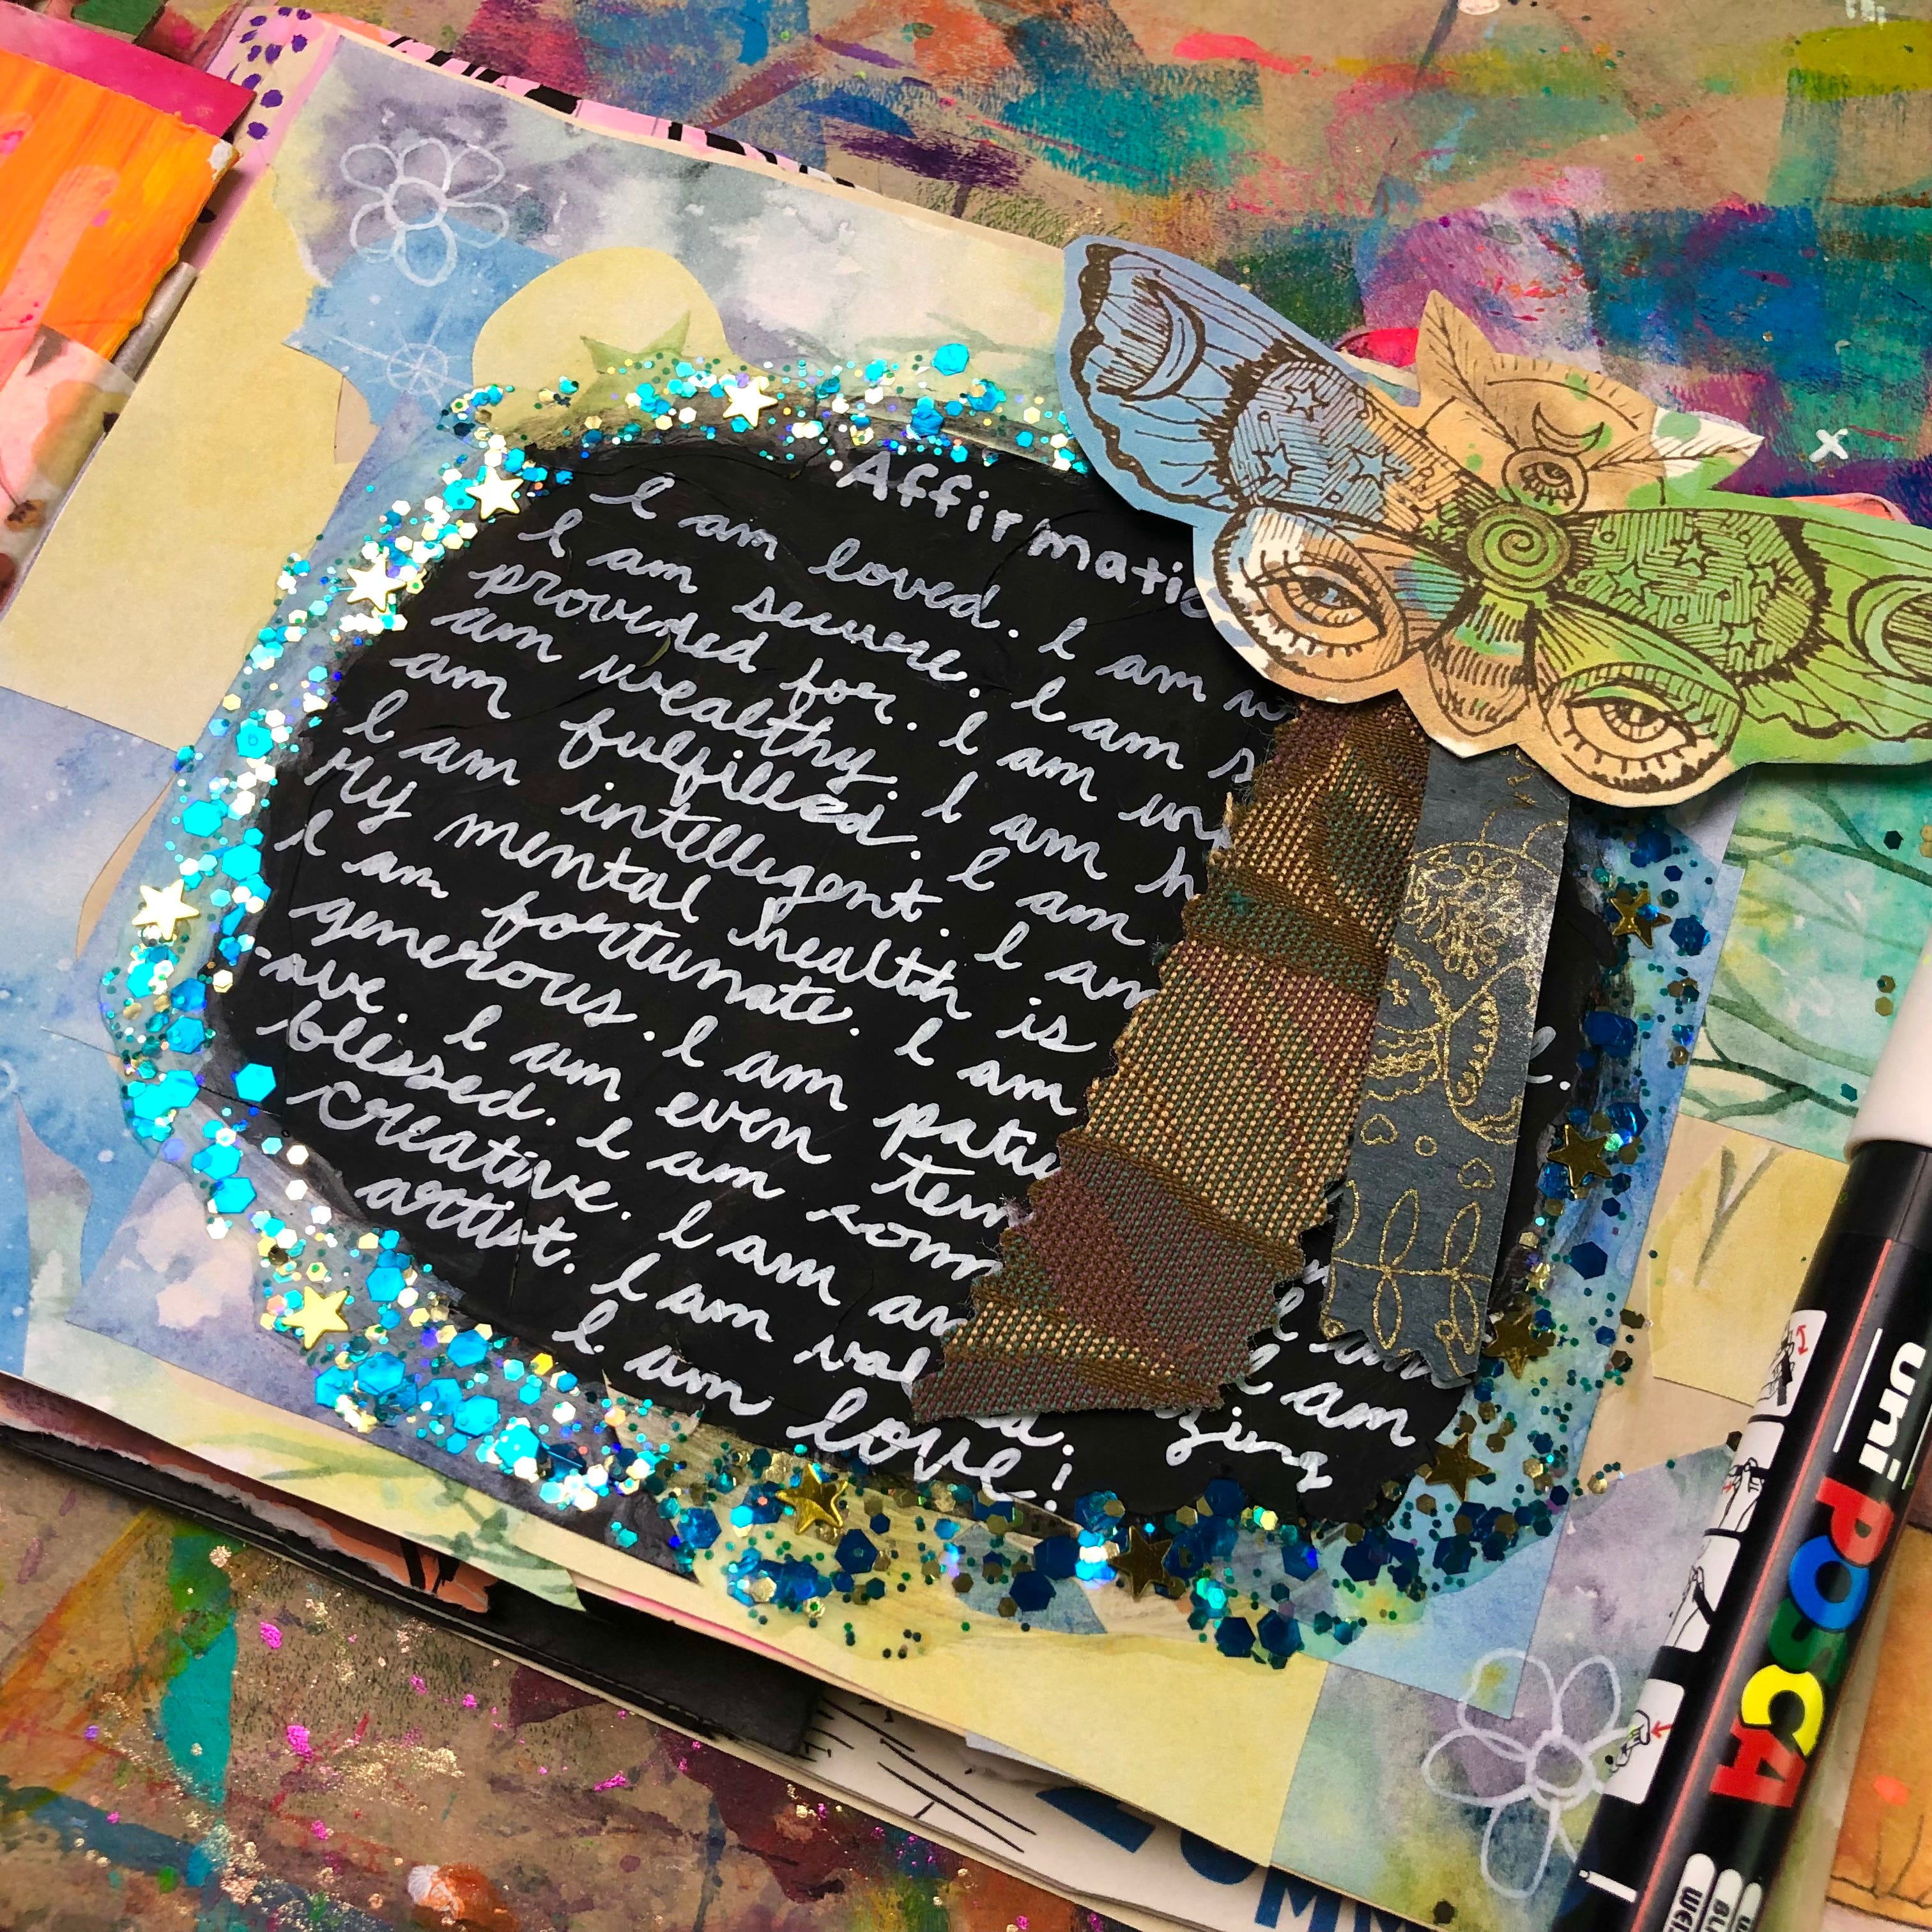 Affirmatio
I am loved. I am
I am secure. I am s
provided for. I am
am wealthy. I am h
am fulfilled. I am
I am intelligent. I am
My mental health is
I am fortunate. I am
generous. I am patie
ave. I am even tem
blessed. I am com
creative. I am an I am
artist. I am val d. zing
I am love!
uni POSCA